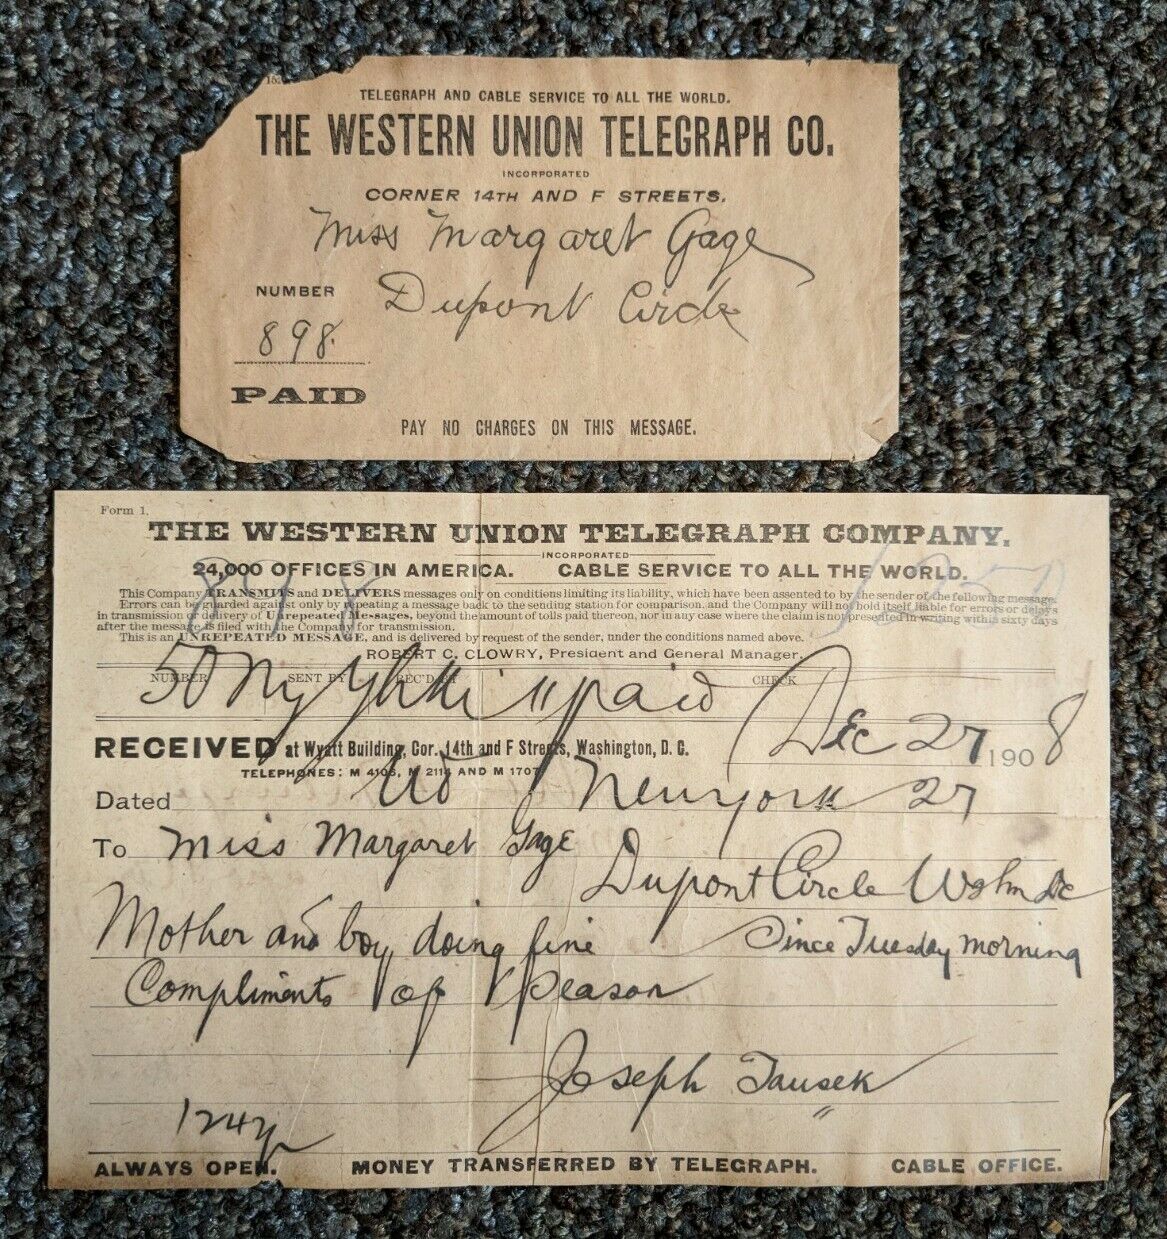 TELEGRAPH AND CABLE SERVICE TO ALL THE WORLD.
THE WESTERN UNION TELEGRAPH CO.
INCORPORATED
CORNER 14TH AND F STREETS.
Miss Margaret Gage
Dupont Circle
NUMBER
898.
PAID
PAY NO CHARGES ON THIS MESSAGE.
Form 1.
THE WESTERN UNION TELEGRAPH COMPANY.
INCORPORATED
24,000 OFFICES IN AMERICA. CABLE SERVICE TO ALL THE WORLD.
This Company TRANSMITS and DELIVERS messages only on conditions limiting its liability, which have been assented to by the sender of the following message.
Errors can be guarded against only by repeating a message back to the sending station for comparison, and the Company will not hold itself liable for errors or delays
in transmission or delivery of Unrepeated Messages, beyond the amount of tolls paid thereon, nor in any case where the claim is not presented in writing within sixty days
after the message is filed with the Company for transmission.
This is an UNREPEATED MESSAGE, and is delivered by request of the sender, under the conditions named above.
ROBERT C. CLOWRY, President and General Manager.
NUMBER SENT BY REC'D BY CHECK
50 Ny paid
RECEIVED at Wyatt Building, Cor. 14th and F Streets, Washington, D. C. Dec 27 1908
TELEPHONES: M 4106, M 2114 AND M 1707
Dated New York 27
To Miss Margaret Gage
Dupont Circle Wshn Dc
Mother and boy doing fine Since Tuesday morning
Compliments of Season
Joseph Tausek
ALWAYS OPEN. MONEY TRANSFERRED BY TELEGRAPH. CABLE OFFICE.